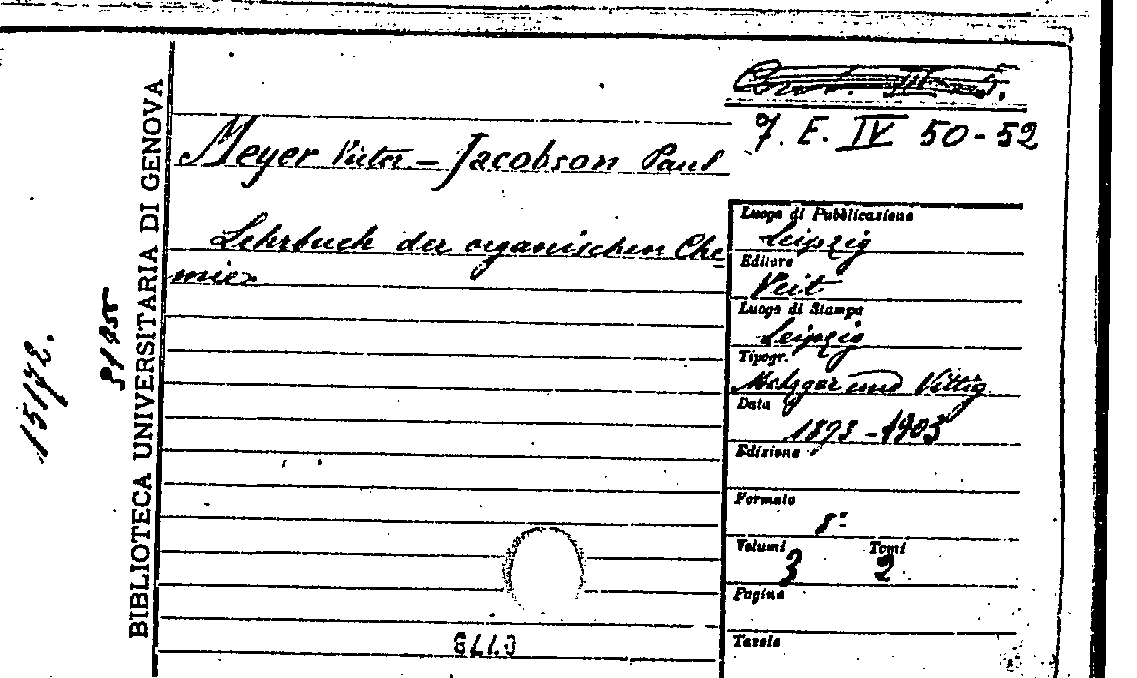 7. E. IV 50-52
Meyer Victor - Jacobson Paul
Lehrbuch der organischen Che
mie
BIBLIOTECA UNIVERSITARIA DI GENOVA
15172.
Luogo di Pubblicazione
Leipzig
Editore
Veit
Luogo di Stampa
Leipzig
Tipogr.
Metzger und Vittig
Data
1893-1903
Edizione
Formato
8°
Volumi Tomi
3 2
Pagine
Tavole